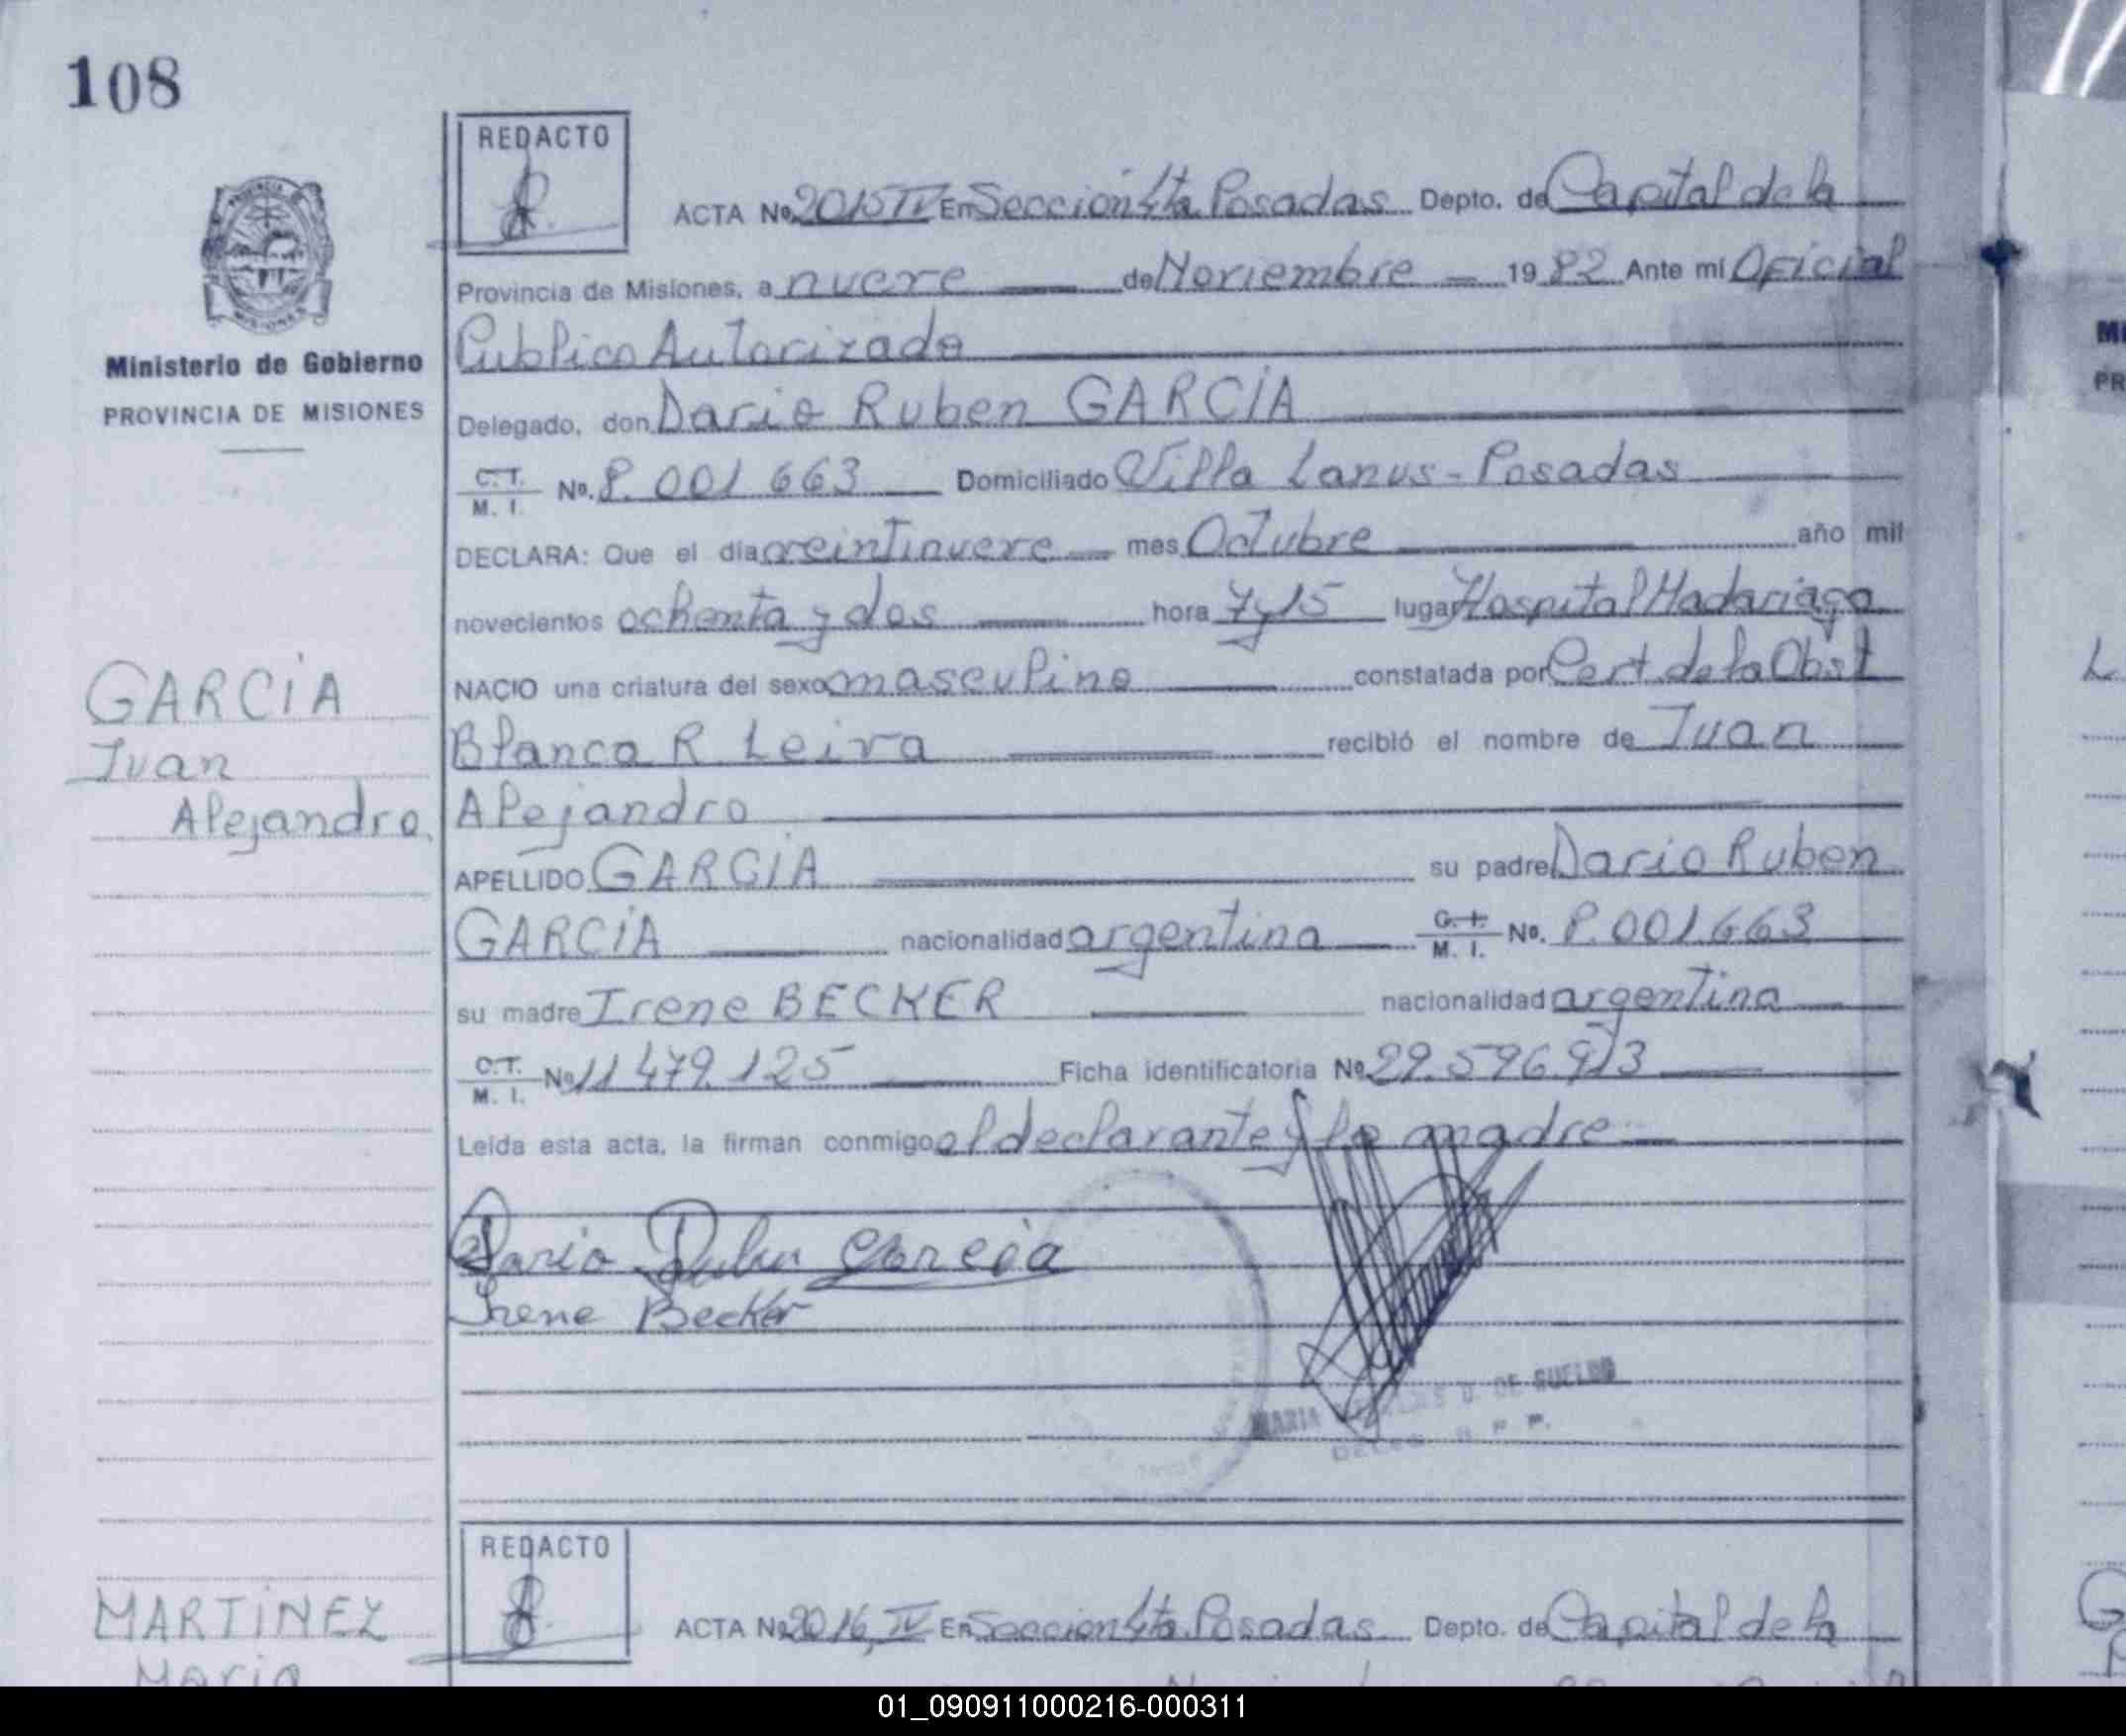 108
REDACTO
ACTA No. 2015 IV En Sección 4ta. Posadas Depto. de Capital de la
Provincia de Misiones, a nueve de Noviembre 1982 Ante mí Oficial
Publico Autorizado
Ministerio de Gobierno
PROVINCIA DE MISIONES
Delegado, don Dario Ruben GARCÍA
C.T. M. I. No. 8.001663 Domiciliado Villa Lanus - Posadas
DECLARA: Que el día veintinueve mes Octubre año mil
novecientos ochenta y dos hora 7 y 15 lugar Hospital Madariaga
NACIO una criatura del sexo masculino constatada por Cert. de la Obst
Blanca R. Leiva recibió el nombre de Juan
Alejandro
GARCÍA
Juan
Alejandro.
APELLIDO GARCÍA su padre Dario Ruben
GARCÍA nacionalidad argentina C.I. M. I. No. 8.001.663
su madre Irene BECKER nacionalidad argentina
C.T. M. I. No 11 479.125 Ficha identificatoria No 29.596.913
Leída esta acta, la firman conmigo el declarante y la madre
Dario Ruben Garcia
Irene Becker
MARIA U. DE SUELDO
REDACTO
MARTINEZ
Maria
ACTA No 2016, IV En Seccion 4ta. Posadas Depto. de Capital de la
01_090911000216-000311